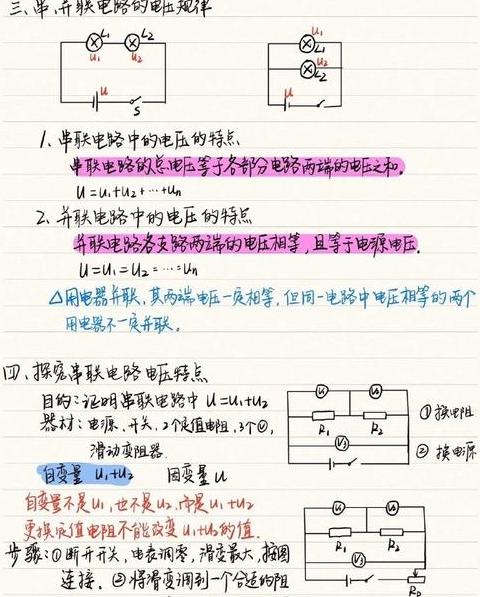 三、串、并联电路的电压规律
L1 L2
u1 u2
u
S
u2
L1
u1
L2
u
1. 串联电路中的电压的特点
串联电路的总电压等于各部分电路两端的电压之和.
U=u1+u2+…+un
2. 并联电路中的电压的特点
并联电路各支路两端的电压相等,且等于电源电压.
U=U1=U2=…=Un
△用电器并联,其两端电压一定相等,但同一电路中电压相等的两个
用电器不一定并联。
四、探究串联电路电压特点
目的:证明串联电路中 U=U1+U2
器材:电源、开关、2个定值电阻、3个V,
滑动变阻器.
自变量 U1+U2 因变量 U
R1 R2
V3
①换电阻
②换电源
自变量不是U1,也不是U2,而是U1+U2
更换定值电阻不能改变U1+U2的值.
步骤:①断开开关,电表调零,滑变最大,按图
连接. ②将滑变调到一个合适的阻
R1 R2
V3